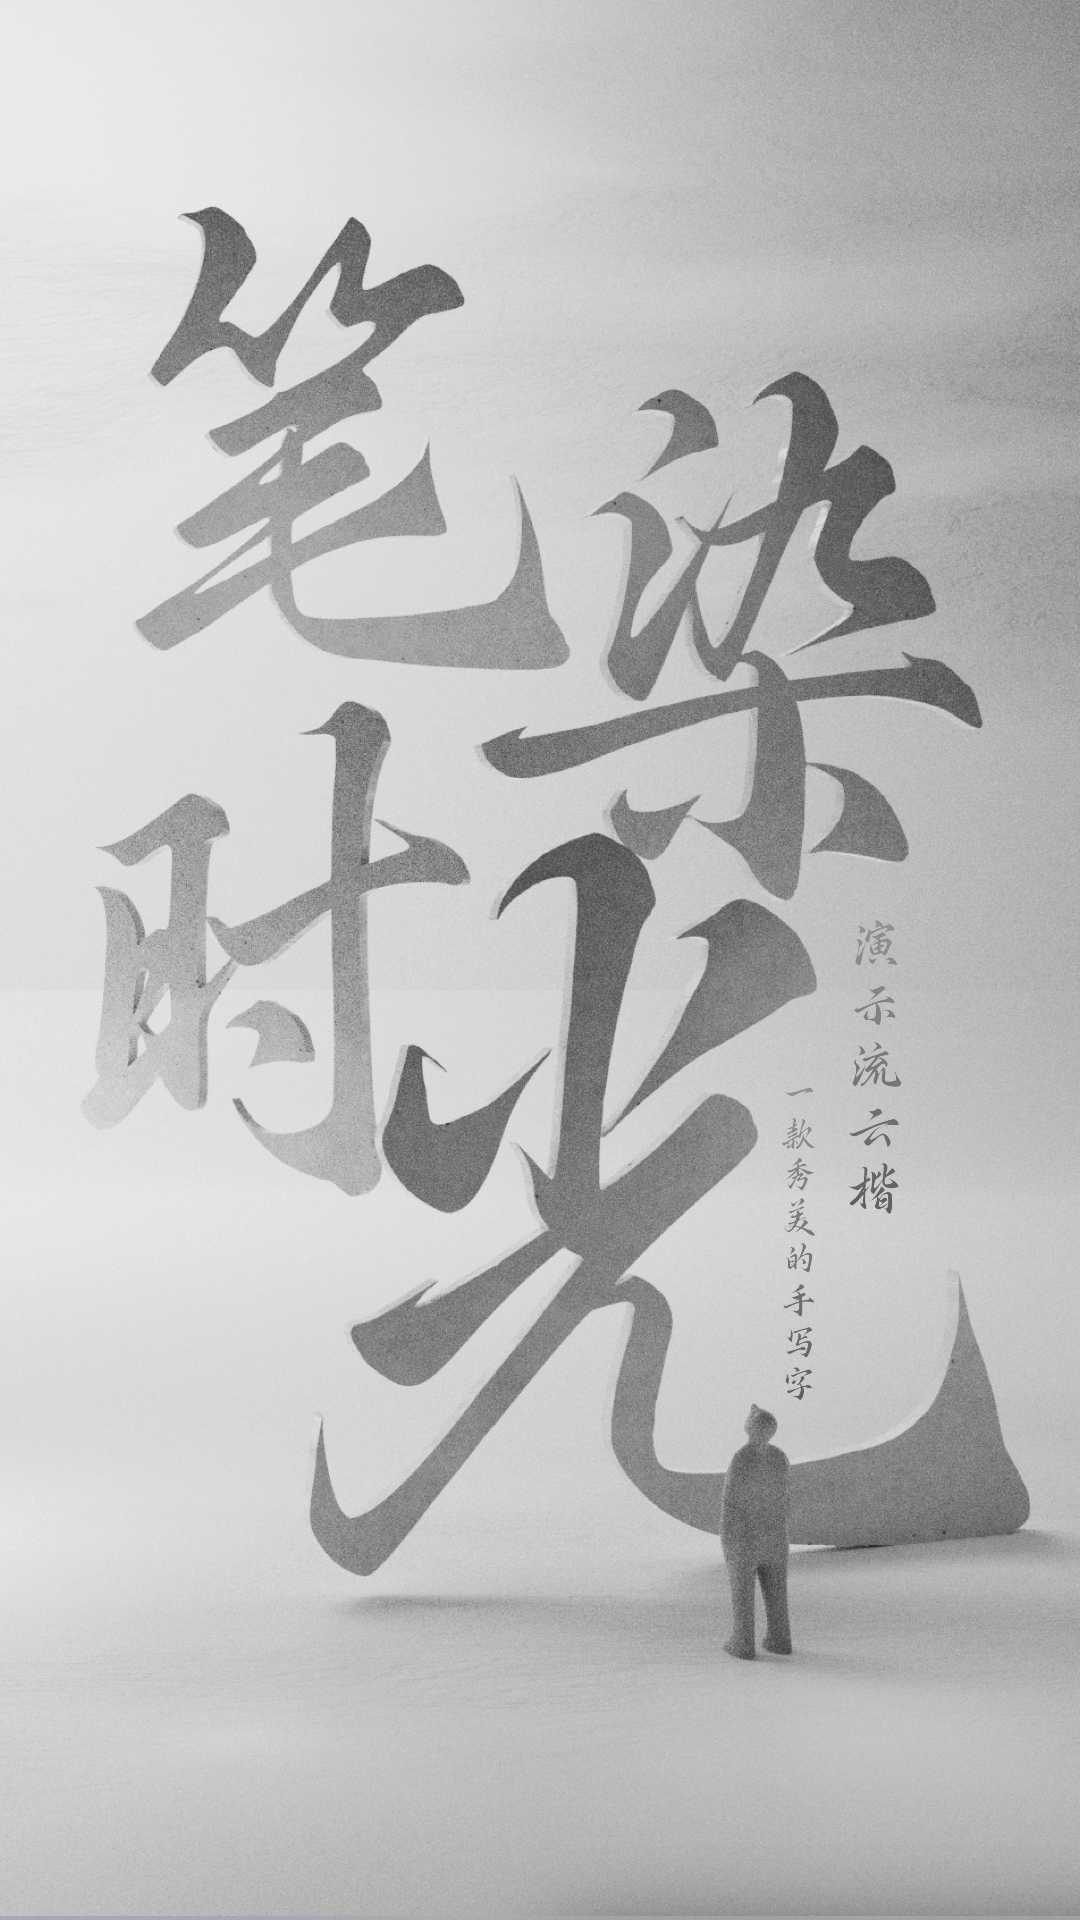 笔染
时光
演示流云楷
一款秀美的手写字